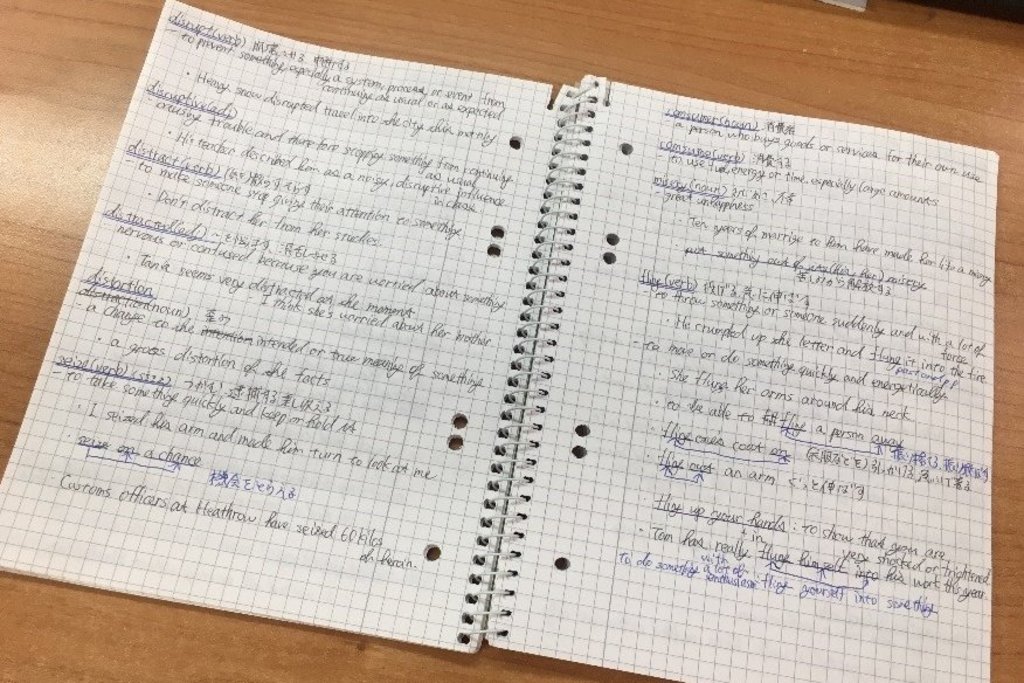 disrupt(verb)
- to prevent something, especially a system, process, or event from
continuing as usual or as expected
· Heavy snow disrupted travel into the city this morning
disruptive(adj)
- causing trouble and therefore stopping something from continuing
as usual
· His teacher described him as a noisy, disruptive influence
in class.
distract(verb)
to make someone stop giving their attention to something
· Don't distract her from her studies.
distracted(adj)
nervous or confused because you are worried about something
· Tania seems very distracted at the moment
I think she's worried about her mother
distortion
(noun)
a change to the intended or true meaning of something
· a gross distortion of the facts
seize(verb) つかむ、逮捕する、差し押える
- to take something quickly and keep or hold it
· I seized his arm and made him turn to look at me.
· seize on a chance
機会をとらえる
Customs officers at Heathrow have seized 60 kilos
of heroin.
consumer(noun) 消費者
a person who buys goods or services for their own use
consume(verb) 消費する
- to use fuel, energy or time, especially large amounts
misery(noun)
- great unhappiness
· Ten years of marriage to him have made her life a misery
· put something out of its(his/her) misery
fling(verb) 投げる、急に伸ばす
- to throw something or someone suddenly and with a lot of
force
· He crumpled up the letter and flung it into the fire
- to move or do something quickly and energetically
· She flung her arms around his neck.
· to be able to fling a person away
· fling one's coat on
· fling out an arm ぐっと伸ばす
fling up your hands : to show that you are
very shocked or frightened
· Tom has really flung himself into his work this year
to do something with a lot of enthusiasm: fling yourself into something